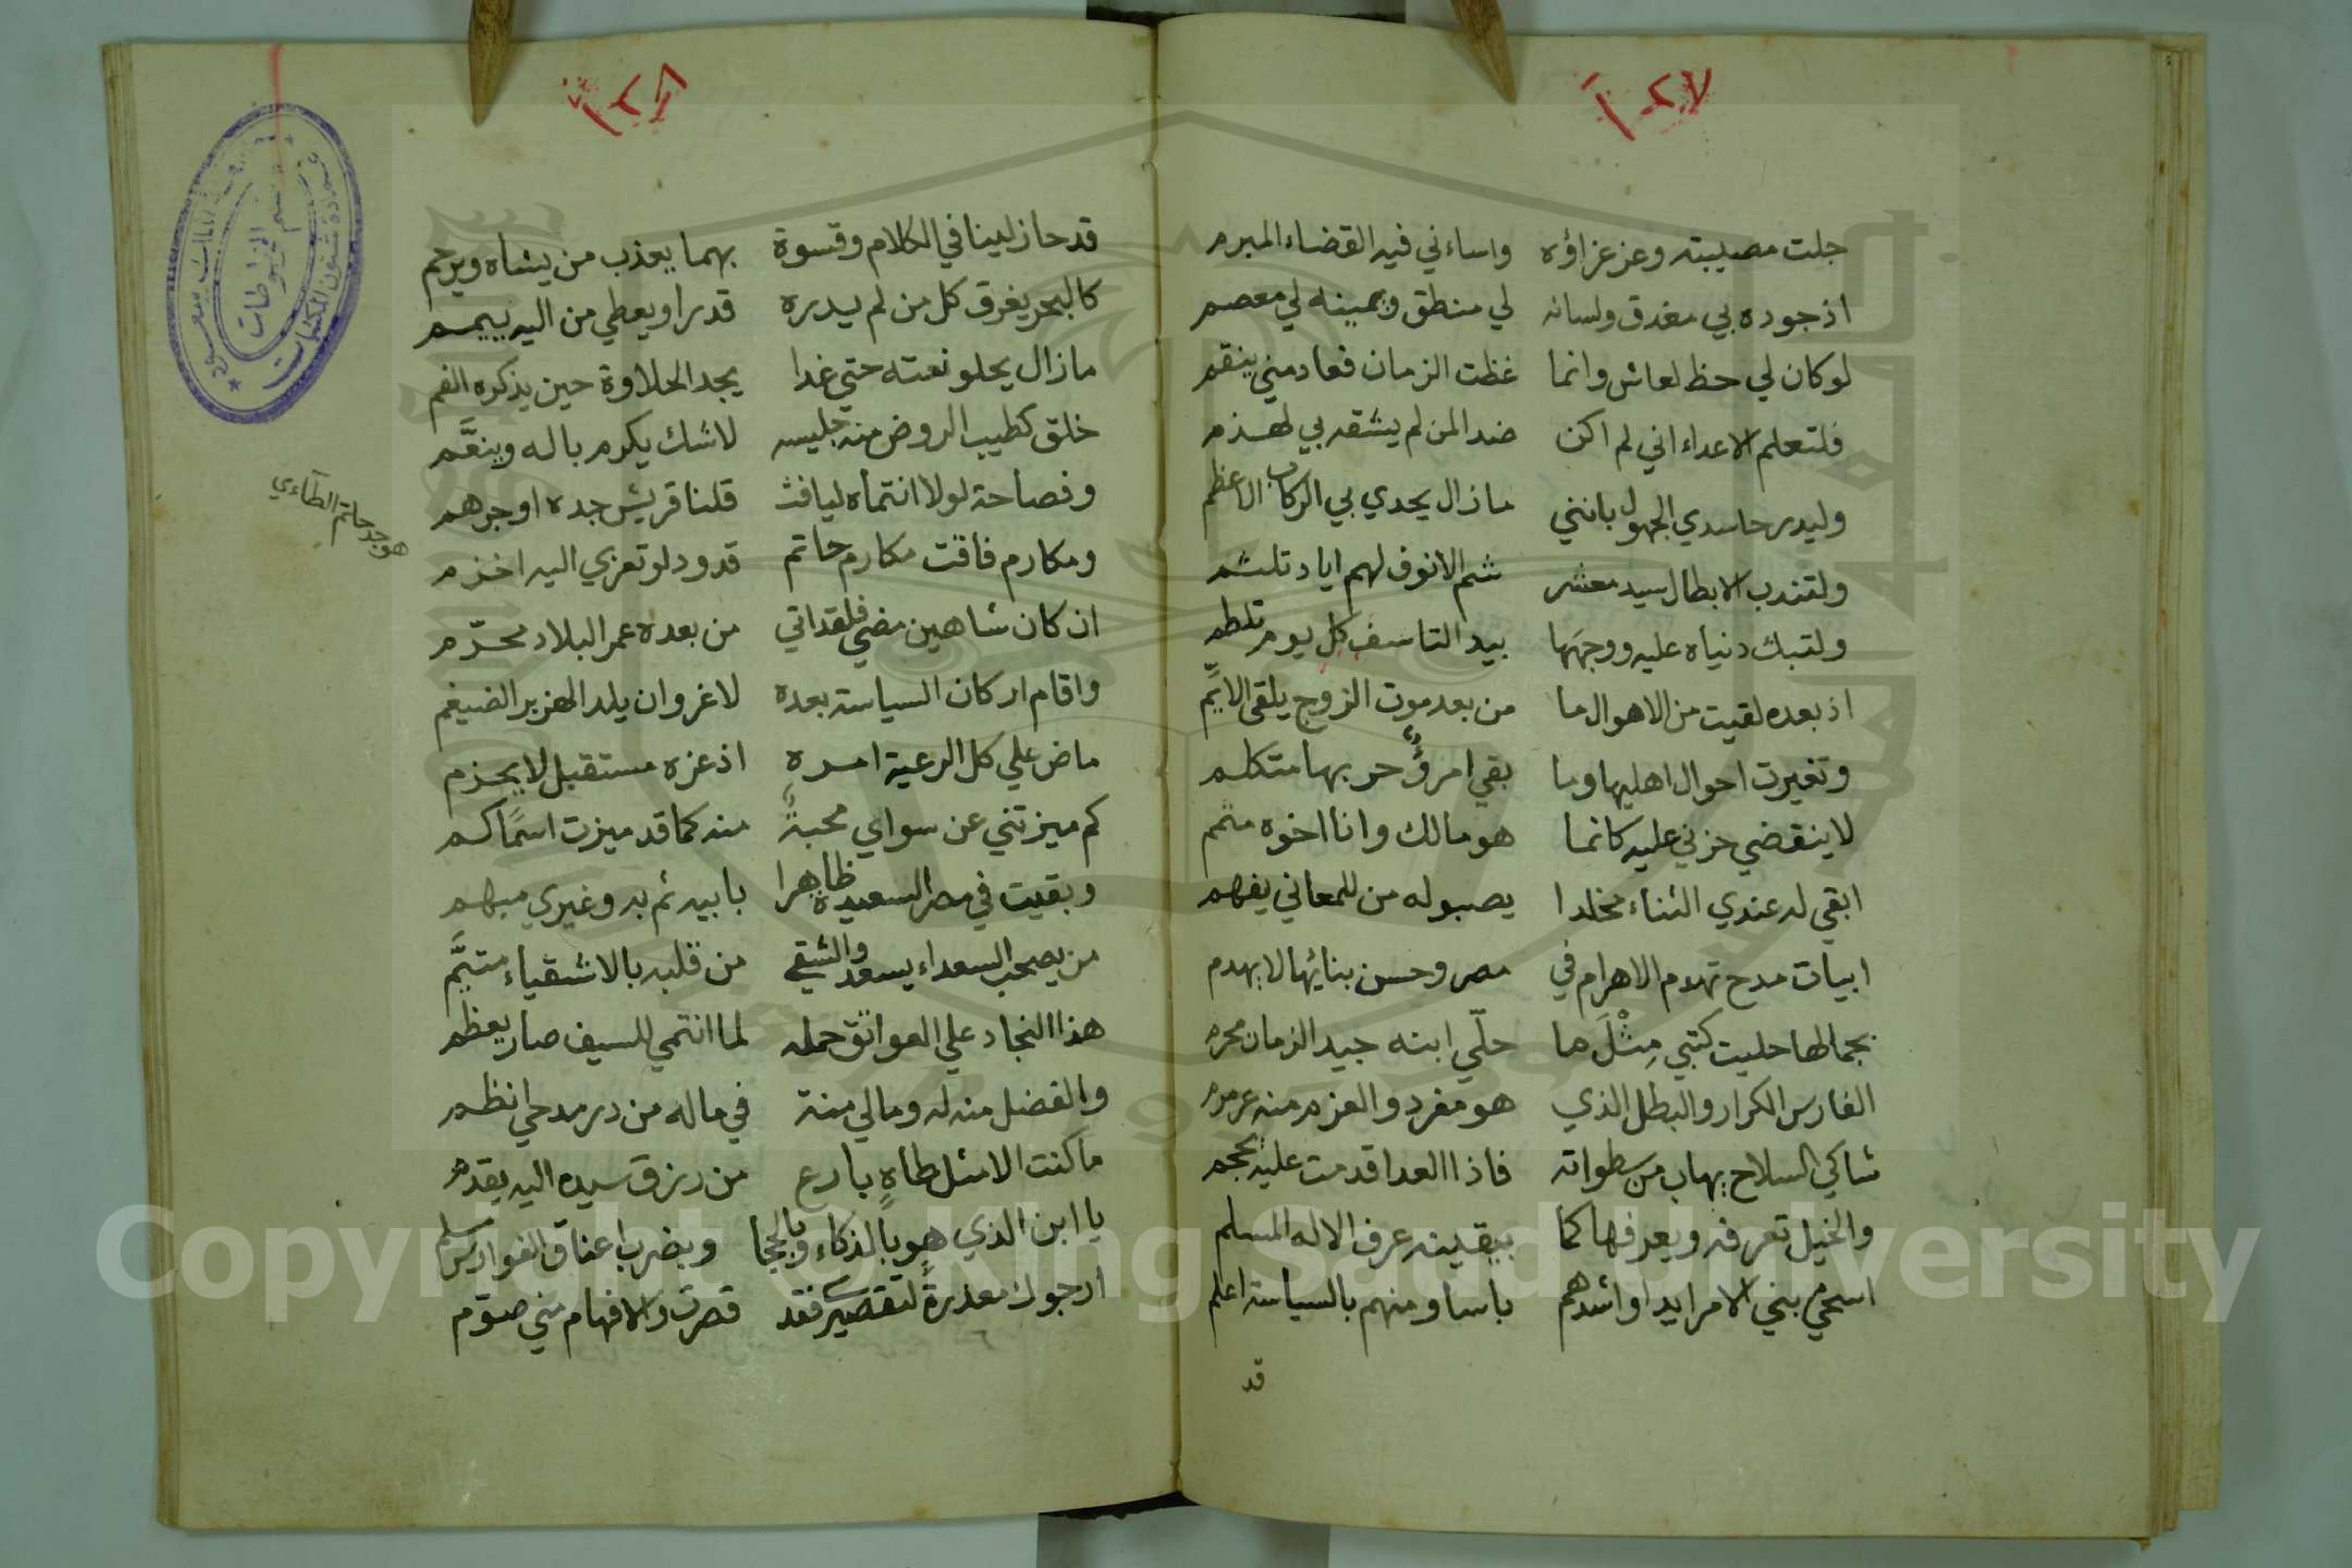 ١٠٢٧
جلت مصيبته وعز عزاؤه واساءني فيه القضاء المبرم
اذ جوده بي مغدق ولسانه لي منطق ويمينه لي معصم
لو كان لي حظ لعاش وانما غظت الزمان فعاد مني ينقم
فلتعلم الاعداء اني لم اكن ضدا لمن لم يشقه بي لهذم
وليدر حاسدي الجهول بانني ما زال يحدي بي الركاب الاعظم
ولتندب الابطال سيد معشر شم الانوف لهم اياد تلثم
ولتبك دنياه عليه ووجهها بيد التاسف كل يوم تلطم
اذ بعده لقيت من الاهوال ما من بعد موت الزوج يلقى الايّم
وتغيرت احوال اهليها وما بقي امرؤٌ حر بها متكلم
لا ينقضي حزني عليه كانما هو مالك وانا اخوه متمم
ابقي له عندي الثناء مخلدا يصبو له من للمعاني يفهم
ابيات مدح تهدم الاهرام في مصر وحسن بنائها لا يهدم
بجمالها حليت كتبي مِثْلَ ما حلّي ابنه جيد الزمان محرم
الفارس الكرار والبطل الذي هو مفرد والعزم منه عرمرم
شاكي السلاح يهاب من سطواته فاذا العدا قدمت عليه تحجم
والخيل تعرفه ويعرفها كما بيقينه عرف الاله المسلم
اسمي بني الامرا يدا واشدهم باسا ومنهم بالسياسة اعلم
قد
١٠٢٨
قد حاز لينا في الكلام وقسوة بهما يعذب من يشاه ويرحم
كالبحر يغرق كل من لم يدره قدرا ويعطي من اليه ييمم
ما زال يحلو نعته حتي غدا يجد الحلاوة حين يذكره الفم
خلق كطيب الروض منه جليسه لا شك يكرم باله وينعَّم
وفصاحة لولا انتماه ليافث قلنا قريش جده او جرهم
ومكارم فاقت مكارم حاتم قد ود لو تعزي اليه اخزم
هو جد حاتم الطآءي
ان كان شاهين مضي فلقد اتي من بعده عمر البلاد محرّم
واقام اركان السياسة بعده لا غرو ان يلد الهزبر الضيغم
ماض علي كل الرعية امره اذ عزه مستقبل لا يجزم
كم ميزتني عن سواي محبةٌ منه كما قد ميزت اسمًا كم
وبقيت في مصر السعيدة ظاهرا بابيه ثم به وغيري مبهم
من يصحب السعداء يسعد والشقي من قلبه بالاشقياء متيَّم
هذا النجاد علي العواتق حمله لما انتمي للسيف صار يعظم
والفضل منه له وما لي منة في ما له من در مدحي انظم
ما كنت الا مثل طاهٍ بارع من رزق سيده اليه يقدم
يا ابن الذي هو بالذكاء وبالحجا وبضرب اعناق الفوارس مسلم
ارجوك معذرةً لتقصيري فقد قصرت والافهام مني صوّم